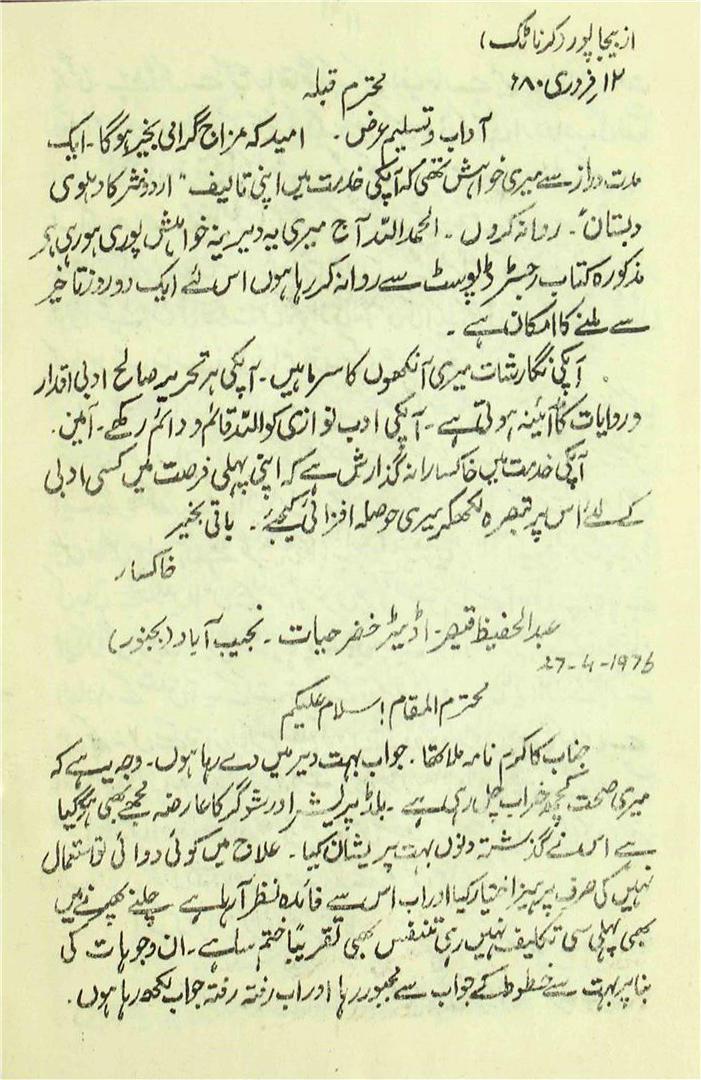 از بیجاپور (کرناٹک)
۱۲ فروری ۸۰ء
محترم قبلہ
آداب و تسلیم عرض۔ امید کہ مزاج گرامی بخیر ہوگا۔ ایک
مدت دراز سے میری خواہش تھی کہ آپکی خدمت میں اپنی تالیف "اردو نثر کا دہلوی
دبستان"۔ روانہ کروں۔ الحمدللہ آج میری یہ دیرینہ خواہش پوری ہو رہی ہے
مذکورہ کتاب رجسٹرڈ پوسٹ سے روانہ کر رہا ہوں اس لئے ایک دو روز تاخیر
سے ملنے کا امکان ہے۔
آپکی نگارشات میری آنکھوں کا سرمہ ہیں۔ آپکی ہر تحریر صالح ادبی اقدار
و روایات کا آئینہ ہوتی ہے۔ آپکی ادب نوازی کو اللہ قائم و دائم رکھے۔ آمین۔
آپکی خدمت میں خاکسارانہ گذارش ہے کہ اپنی پہلی فرصت میں کسی ادبی
کے لئے اس پر تبصرہ لکھکر میری حوصلہ افزائی کیجئے۔ باقی بخیر
خاکسار
عبدالحفیظ قیصر۔ اڈیٹر خضر حیات۔ نجیب آباد (بجنور)
27-4-1976
محترم المقام! سلام علیکم
جناب کا کرم نامہ ملا تھا۔ جواب بہت دیر میں دے رہا ہوں۔ وجہ یہ ہے کہ
میری صحت کچھ خراب چل رہی ہے۔ بلڈ پریشر اور شوگر کا عارضہ مجھے بھی ہو گیا
ہے اس نے گذشتہ دنوں بہت پریشان کیا۔ علاج میں کوئی دوائی تو استعمال
نہیں کی صرف پرہیز اختیار کیا اور اب اس سے فائدہ نظر آ رہا ہے چلنے پھرنے میں
بھی پہلی سی تکلیف نہیں رہی تنفس بھی تقریباً ختم سا ہے۔ ان وجوہات کی
بنا پر بہت سے خطوط کے جواب سے مجبور رہا اور اب رفتہ رفتہ جواب لکھ رہا ہوں۔